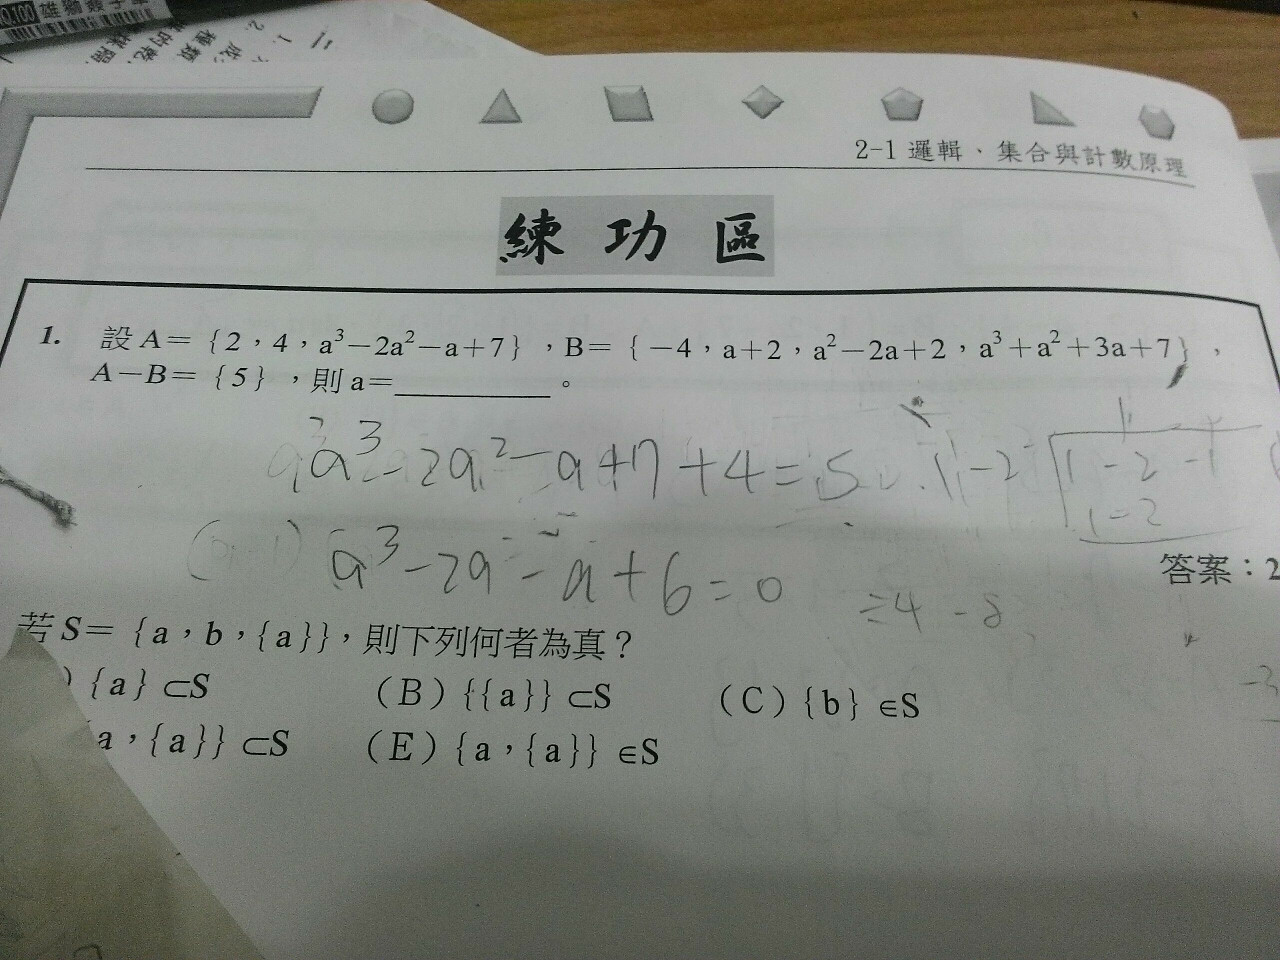 2-1 邏輯、集合與計數原理
練功區
1. 設 A＝{2，4，a³－2a²－a＋7}，B＝{－4，a＋2，a²－2a＋2，a³＋a²＋3a＋7}，
A－B＝{5}，則 a＝＿＿＿＿。
a³－2a²－a＋7＋4＝5
1－2
1 －2 －1
1－2
a³－2a－a＋6＝0
＝4 －8
答案：2
若 S＝{a，b，{a}}，則下列何者為真？
) {a} ⊂S
(B) {{a}} ⊂S
(C) {b} ∈S
a，{a}} ⊂S
(E) {a，{a}} ∈S